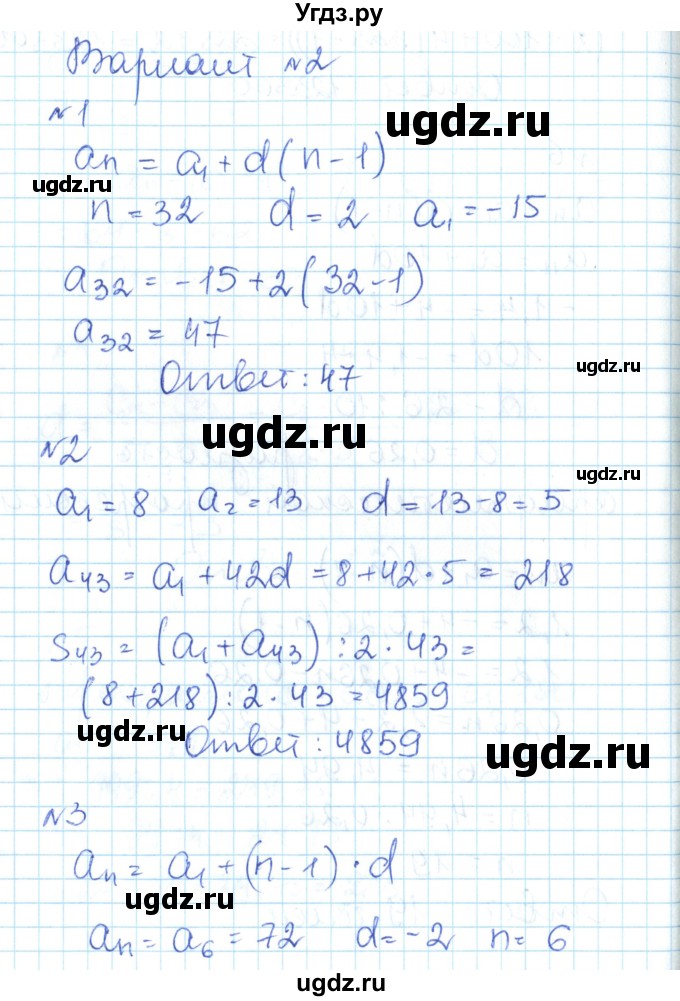 Угдз.ру
Вариант №2
№1
ugdz.ru
aₙ = a₁ + d(n-1)
ugdz.ru
n = 32 d = 2 a₁ = -15
a₃₂ = -15+2(32-1)
a₃₂ = 47
ugdz.ru
Ответ: 47
ugdz.ru
№2
ugdz.ru
a₁ = 8 a₂ = 13 d = 13-8 = 5
a₄₃ = a₁ + 42d = 8+42·5 = 218
S₄₃ = (a₁ + a₄₃) : 2 · 43 =
(8+218) : 2 · 43 = 4859
ugdz.ru
Ответ: 4859
ugdz.ru
№3
aₙ = a₁ + (n-1)·d
ugdz.ru
aₙ = a₆ = 72 d = -2 n = 6
ugdz.ru